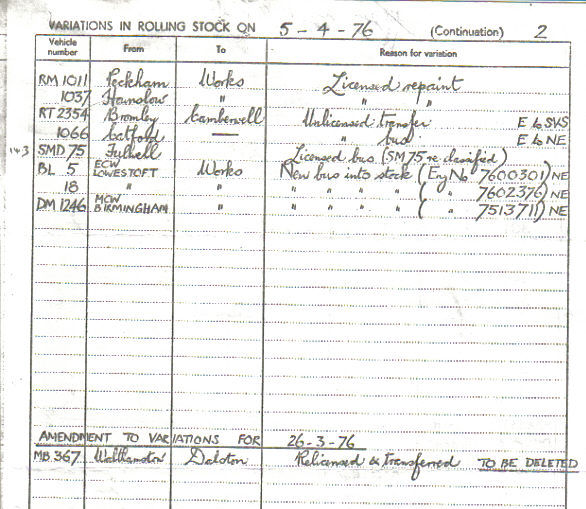 VARIATIONS IN ROLLING STOCK ON 5-4-76 (Continuation) 2
Vehicle number From To Reason for variation
RM 1011 Peckham Works Licensed repaint
1037 Hanslow " " "
RT 2354 Bromley Camberwell Unlicensed transfer E to SVS
1066 Catford — " bus E to NE
143 SMD 75 Fulwell Licensed bus (SM 75 re classified)
BL 5 ECW LOWESTOFT Works New bus into stock (Eng No 7600301) NE
18 " " " " " " ( " 7602376) NE
DM 1246 MCW BIRMINGHAM " " " " " ( " 7513711) NE
AMENDMENT TO VARIATIONS FOR 26-3-76
MB 367 Walthamstow Dalston Relicensed & transferred TO BE DELETED